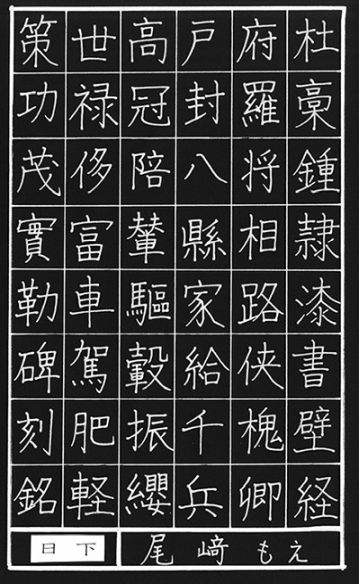 杜稾鍾隷漆書壁経
府羅将相路侠槐卿
戸封八縣家給千兵
高冠陪輦驅轂振纓
世禄侈富車駕肥軽
策功茂實勒碑刻銘
日下
尾﨑もえ